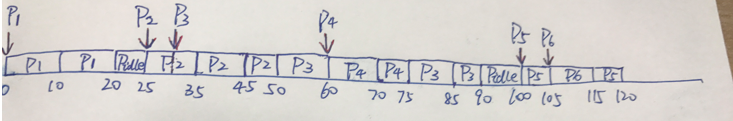 P1 P2 P3 P4 P5 P6
P1 P1 Pidle P2 P2 P2 P3 P4 P4 P3 P3 Pidle P5 P6 P5
0 10 20 25 35 45 50 60 70 75 85 90 100 105 115 120